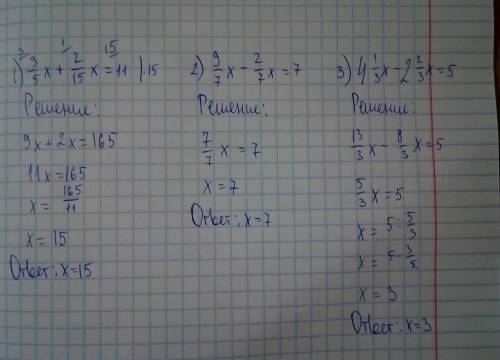 1) 3/5 x + 2/15 x = 11 | · 15
Решение:
9x + 2x = 165
11x = 165
x = 165/11
x = 15
Ответ: x = 15
2) 9/7 x − 2/7 x = 7
Решение:
7/7 x = 7
x = 7
Ответ: x = 7
3) 4 1/3 x − 2 2/3 x = 5
Решение:
13/3 x − 8/3 x = 5
5/3 x = 5
x = 5 : 5/3
x = 5 · 3/5
x = 3
Ответ: x = 3